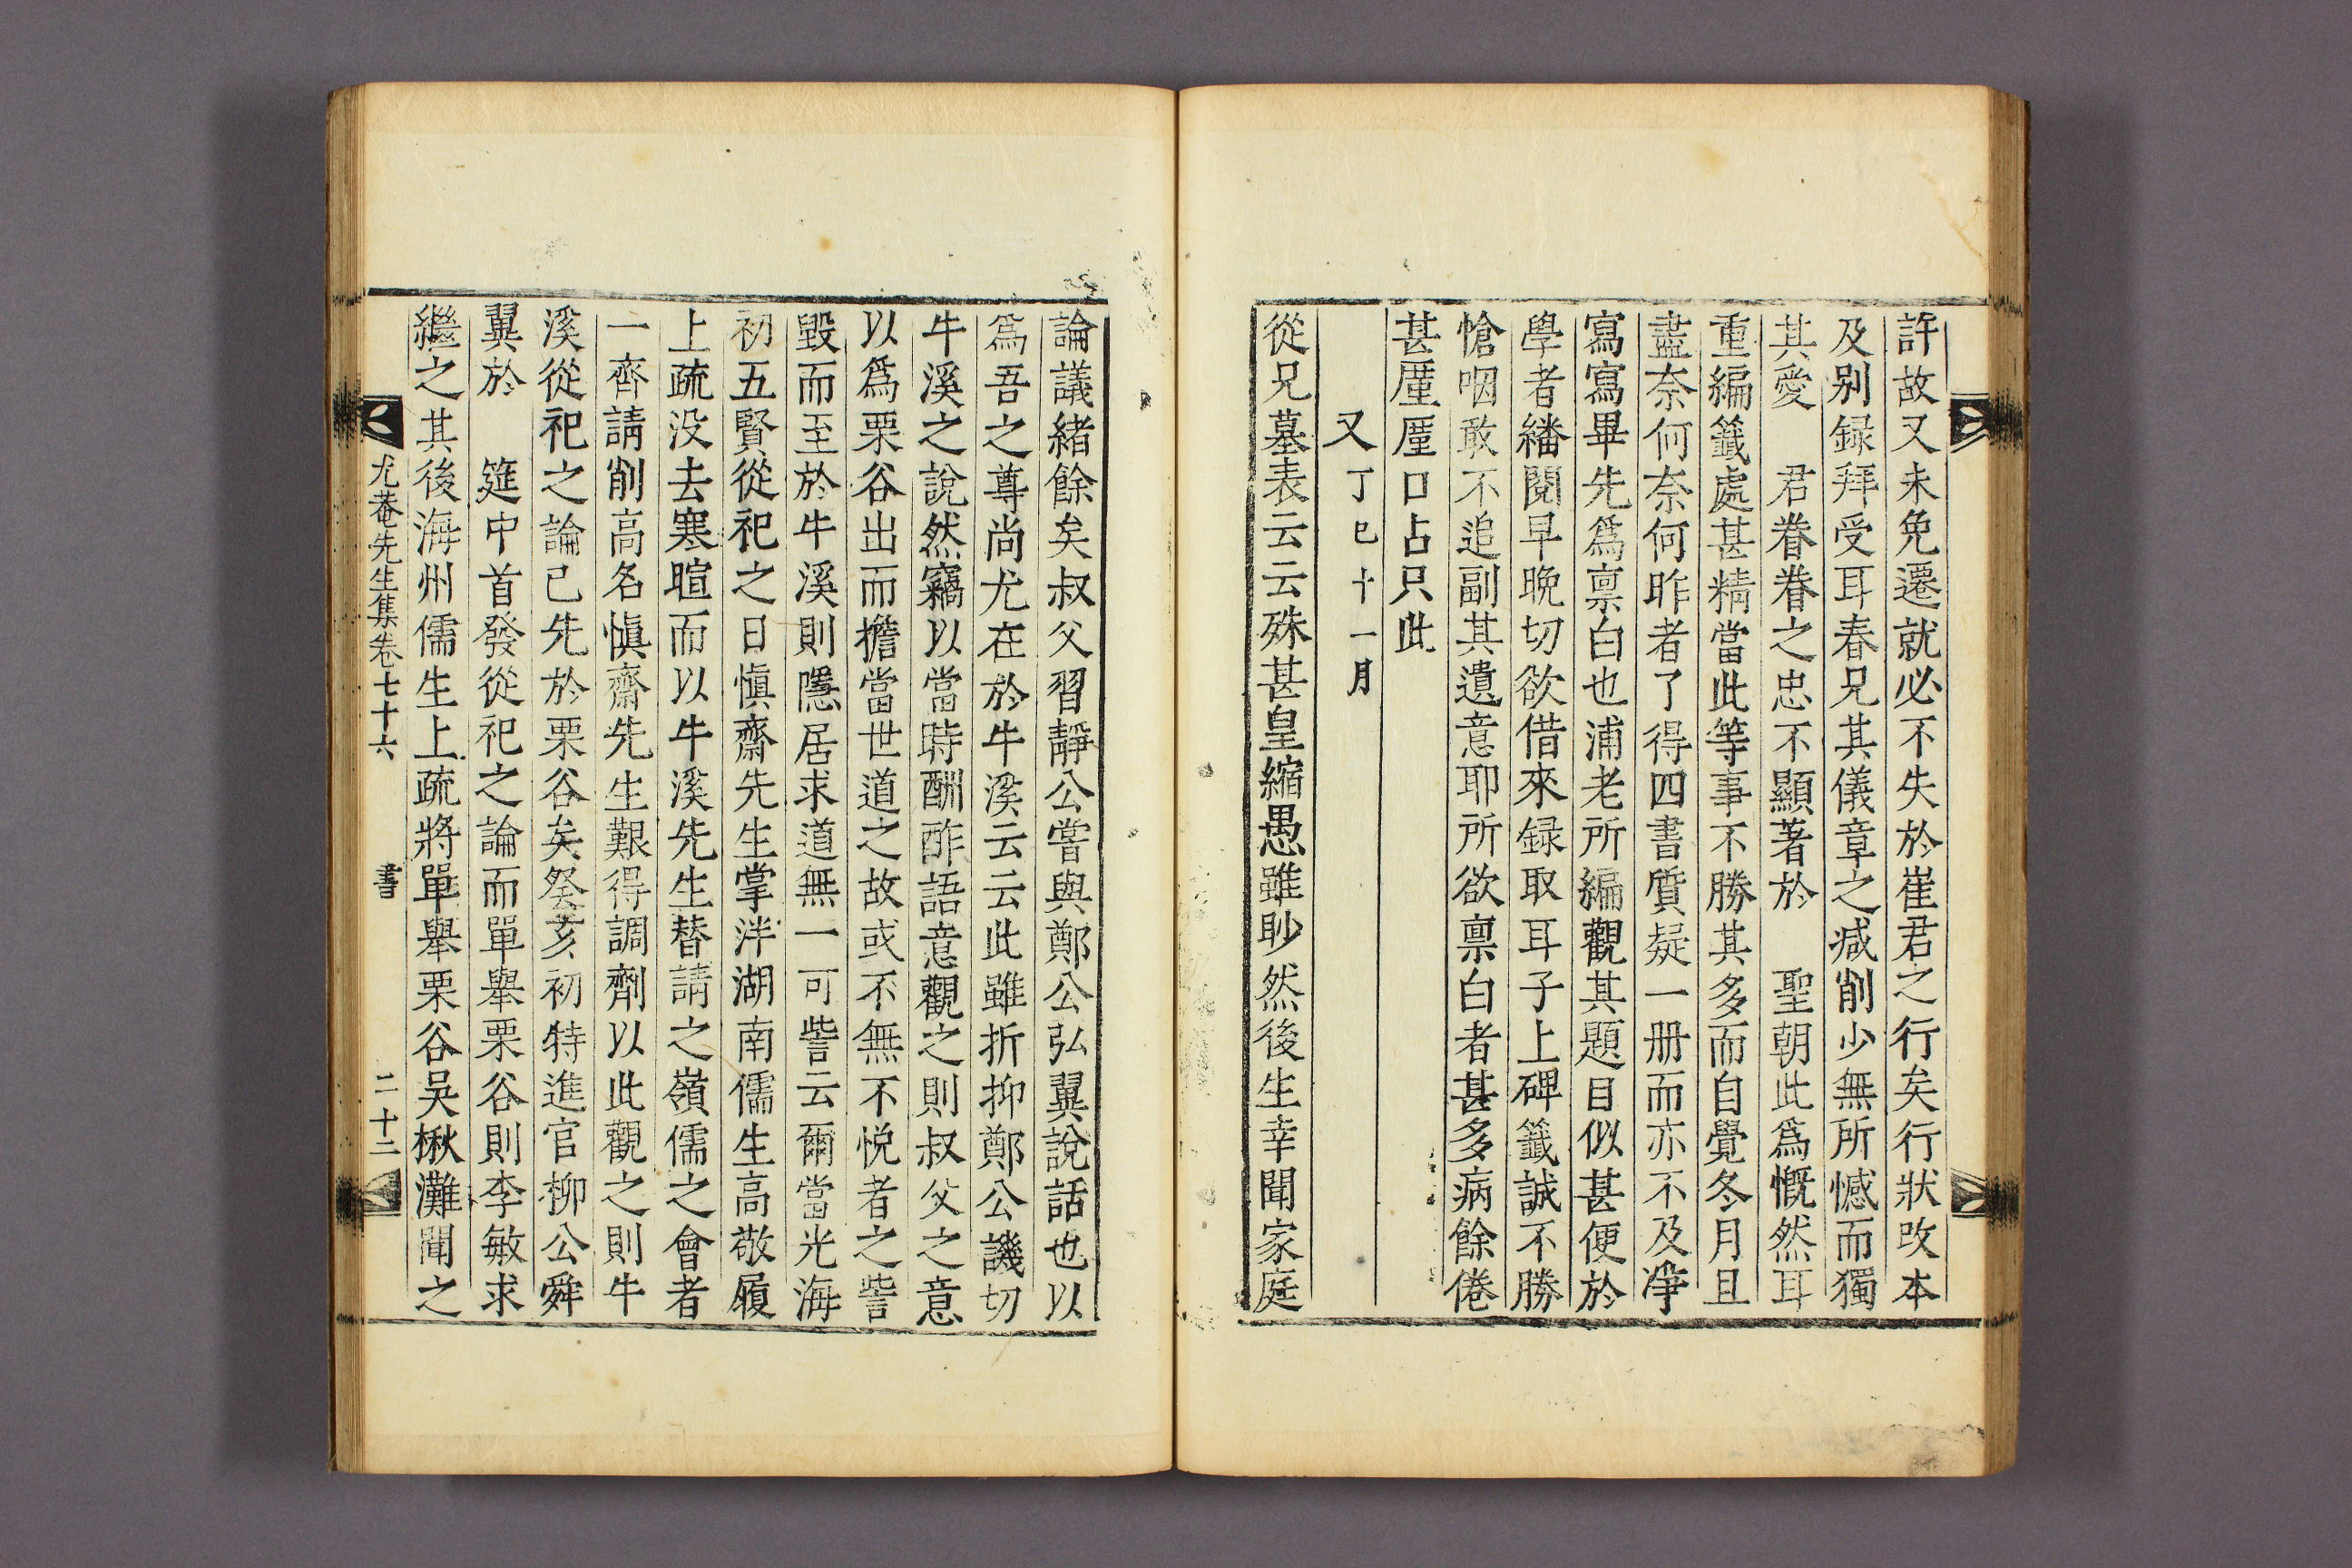 許故又未免遷就必不失於崔君之行矣行狀改本
及别録拜受耳春兄其儀章之减削少無所憾而獨
其愛　君眷眷之忠不顯著於　聖朝此爲慨然耳
重編籤處甚精當此等事不勝其多而自覺冬月且
盡奈何奈何昨者了得四書質疑一册而亦不及淨
寫寫畢先爲禀白也浦老所編觀其題目似甚便於
學者繙閱早晩切欲借來録取耳子上碑籤誠不勝
愴咽敢不追副其遺意耶所欲禀白者甚多病餘倦
甚廑廑口占只此
又丁巳十一月
從兄墓表云云殊甚皇縮愚雖眇然後生幸聞家庭
論議緖餘矣叔父習靜公嘗與鄭公弘翼說話也以
爲吾之尊尚尤在於牛溪云云此雖折抑鄭公譏切
牛溪之說然竊以當時酬酢語意觀之則叔父之意
以爲栗谷出而擔當世道之故或不無不悅者之訾
毀而至於牛溪則隱居求道無一可訾云爾當光海
初五賢從祀之日愼齋先生掌泮湖南儒生高敬履
上疏没去寒暄而以牛溪先生替請之嶺儒之會者
一齊請削高名愼齋先生艱得調劑以此觀之則牛
溪從祀之論已先於栗谷矣癸亥初特進官柳公舜
翼於　筵中首發從祀之論而單舉栗谷則李敏求
繼之其後海州儒生上疏將單舉栗谷吳楸灘聞之
尤菴先生集卷七十六　書　二十二